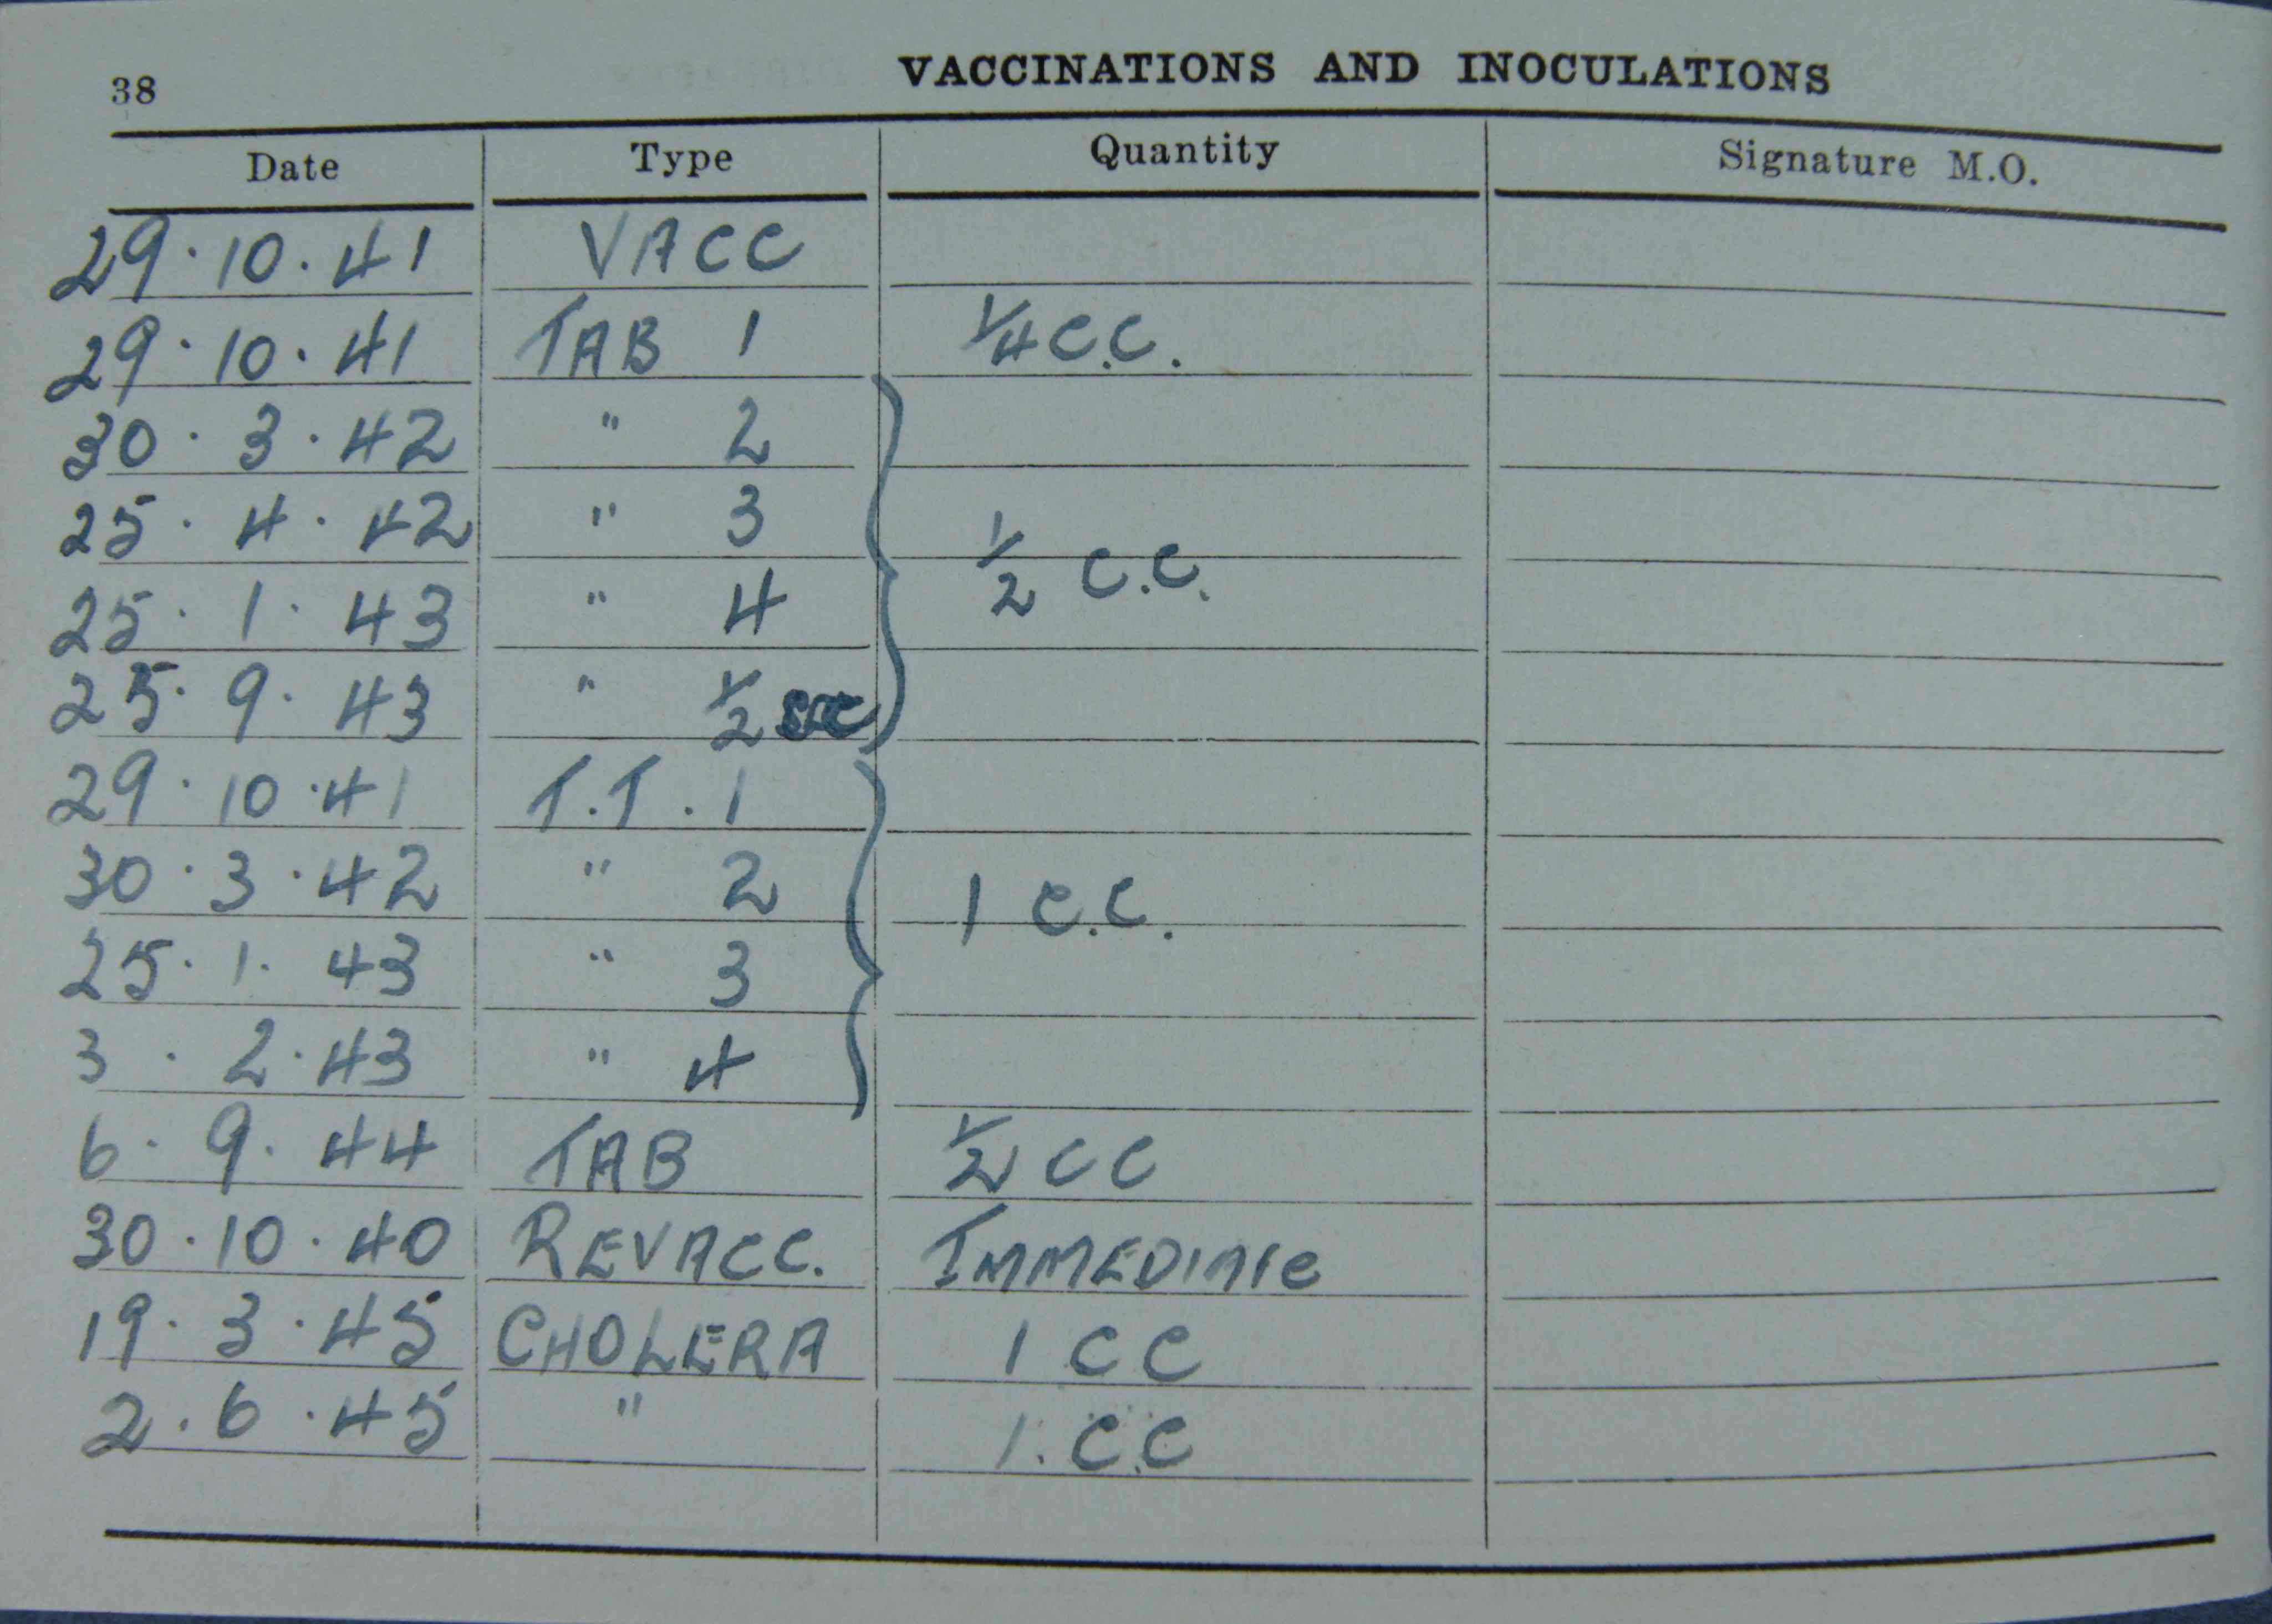 38 VACCINATIONS AND INOCULATIONS
Date Type Quantity Signature M.O.
29.10.41 VACC
29.10.41 TAB 1 1/4 C.C.
30.3.42 " 2
25.4.42 " 3
1/2 C.C.
25.1.43 " 4
25.9.43 " 1/2
29.10.41 T.T. 1
30.3.42 " 2 1 C.C.
25.1.43 " 3
3.2.43 " 4
6.9.44 TAB 1/2 CC
30.10.40 REVACC. IMMEDIATE
19.3.45 CHOLERA 1 CC
2.6.45 " 1.CC